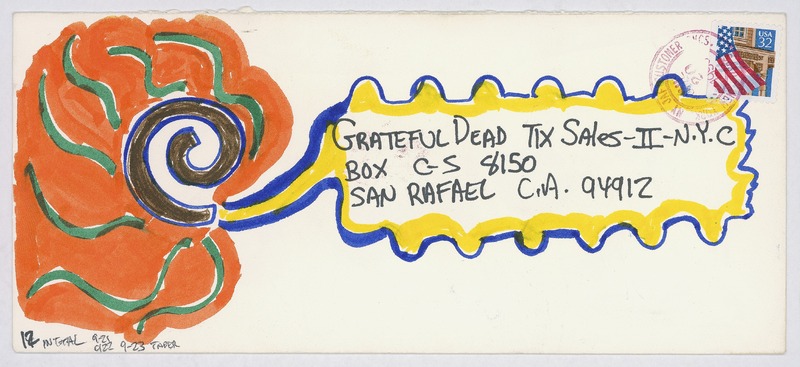 USA
32
GRATEFUL DEAD TIX SALES-II-N.Y.C
BOX C-S 8150
SAN RAFAEL C.A. 94912
12 IN TOTAL 9-21
9-22 9-23 TAPER
CUSTOMER